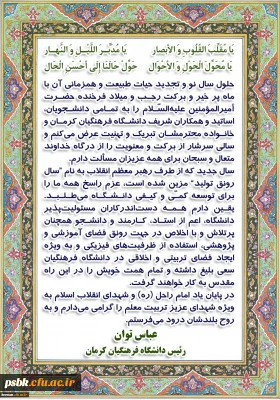 یَا مُقَلِّبَ القُلُوبِ وَ الأبصَارِ یَا مُدَبِّرَ اللَّیلِ وَ النَّهَار
یَا مُحَوِّلَ الحَولِ وَ الأحوَالِ حَوِّل حَالَنَا إلَی أحسَنِ الحَال
حلول سال نو و تجدید حیات طبیعت و همزمانی آن با
ماه پر خیر و برکت رجب و میلاد فرخنده حضرت
امیرالمؤمنین علیه‌السّلام را به تمامی دانشجویان،
اساتید و همکاران شریف دانشگاه فرهنگیان کرمان و
خانواده محترمشان تبریک و تهنیت عرض می‌کنم و
سالی سرشار از برکت و معنویت را از درگاه خداوند
متعال و سبحان برای همه عزیزان مسألت دارم.
سال جدید که از طرف رهبر معظم انقلاب به نام "سال
رونق تولید" مزین شده است، عزم راسخ همه ما را
برای توسعه کمی و کیفی دانشگاه می‌طلبد.
یقین دارم همه دست‌اندرکاران مسئولیت‌پذیر
دانشگاه، اعم از استاد، کارمند و دانشجو همچنان
پرتلاش و با اخلاص در جهت رونق فضای آموزشی و
پژوهشی، استفاده از ظرفیت‌های فیزیکی و به ویژه
ایجاد فضای تربیتی و اخلاقی در دانشگاه فرهنگیان
سعی بلیغ داشته و تمام همت خویش را در این راه
مقدس به کار خواهند گرفت.
در پایان یاد امام راحل (ره) و شهدای انقلاب اسلام به
ویژه شهدای عزیز تربیت معلم را گرامی می‌دارم و به
روح بلندشان درود می‌فرستم.
عباس توان
رئیس دانشگاه فرهنگیان کرمان
psbk.cfu.ac.ir